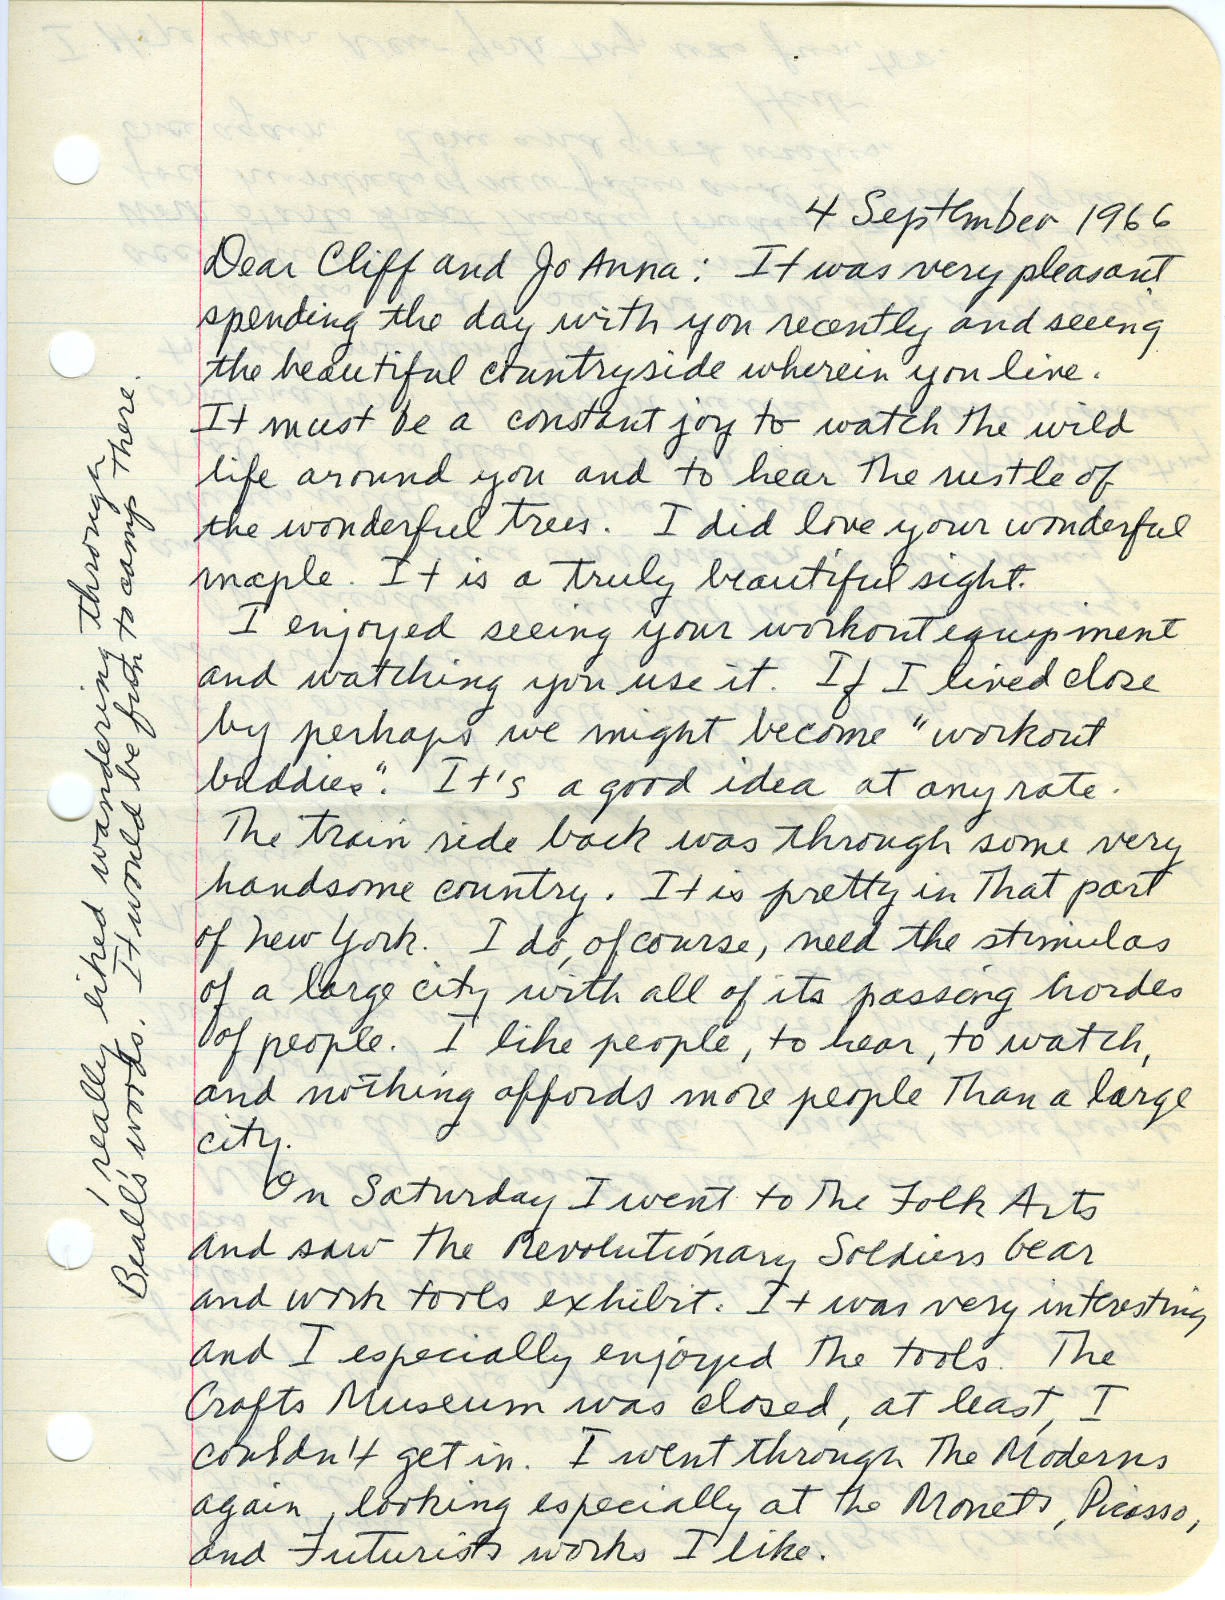 4 September 1966
Dear Cliff and Jo Anna: It was very pleasant
spending the day with you recently and seeing
the beautiful countryside wherein you live.
It must be a constant joy to watch the wild
life around you and to hear the rustle of
the wonderful trees. I did love your wonderful
maple. It is a truly beautiful sight.
I enjoyed seeing your workout equipment
and watching you use it. If I lived close
by perhaps we might become "workout
buddies". It's a good idea at any rate.
The train ride back was through some very
handsome country. It is pretty in that part
of New York. I do, of course, need the stimulas
of a large city with all of its passing hordes
of people. I like people, to hear, to watch,
and nothing affords more people than a large
city.
On Saturday I went to the Folk Arts
and saw the Revolutionary Soldiers Gear
and work tools exhibit. It was very interesting
and I especially enjoyed the tools. The
Crafts Museum was closed, at least, I
couldn't get in. I went through the Moderns
again, looking especially at the Monets, Picasso,
and Futurists works I like.
I really liked wandering through
Beall's woods. It would be fun to camp there.